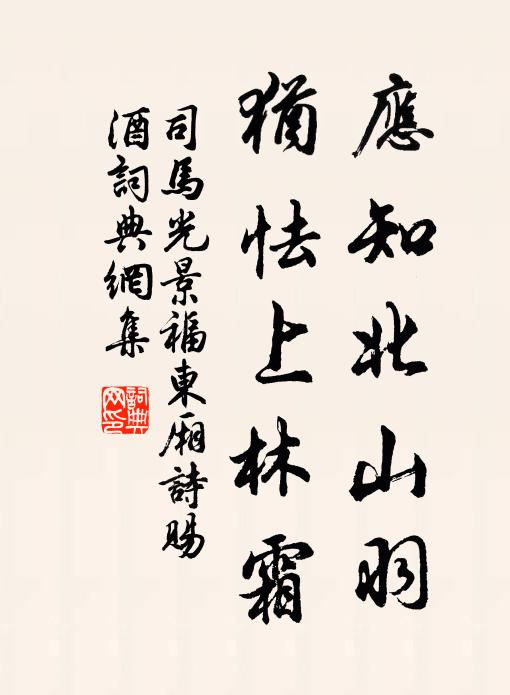 應知北山羽
猶怯上林霜
司馬光景福東廂詩賜
酒詞典網集
詞典
网印